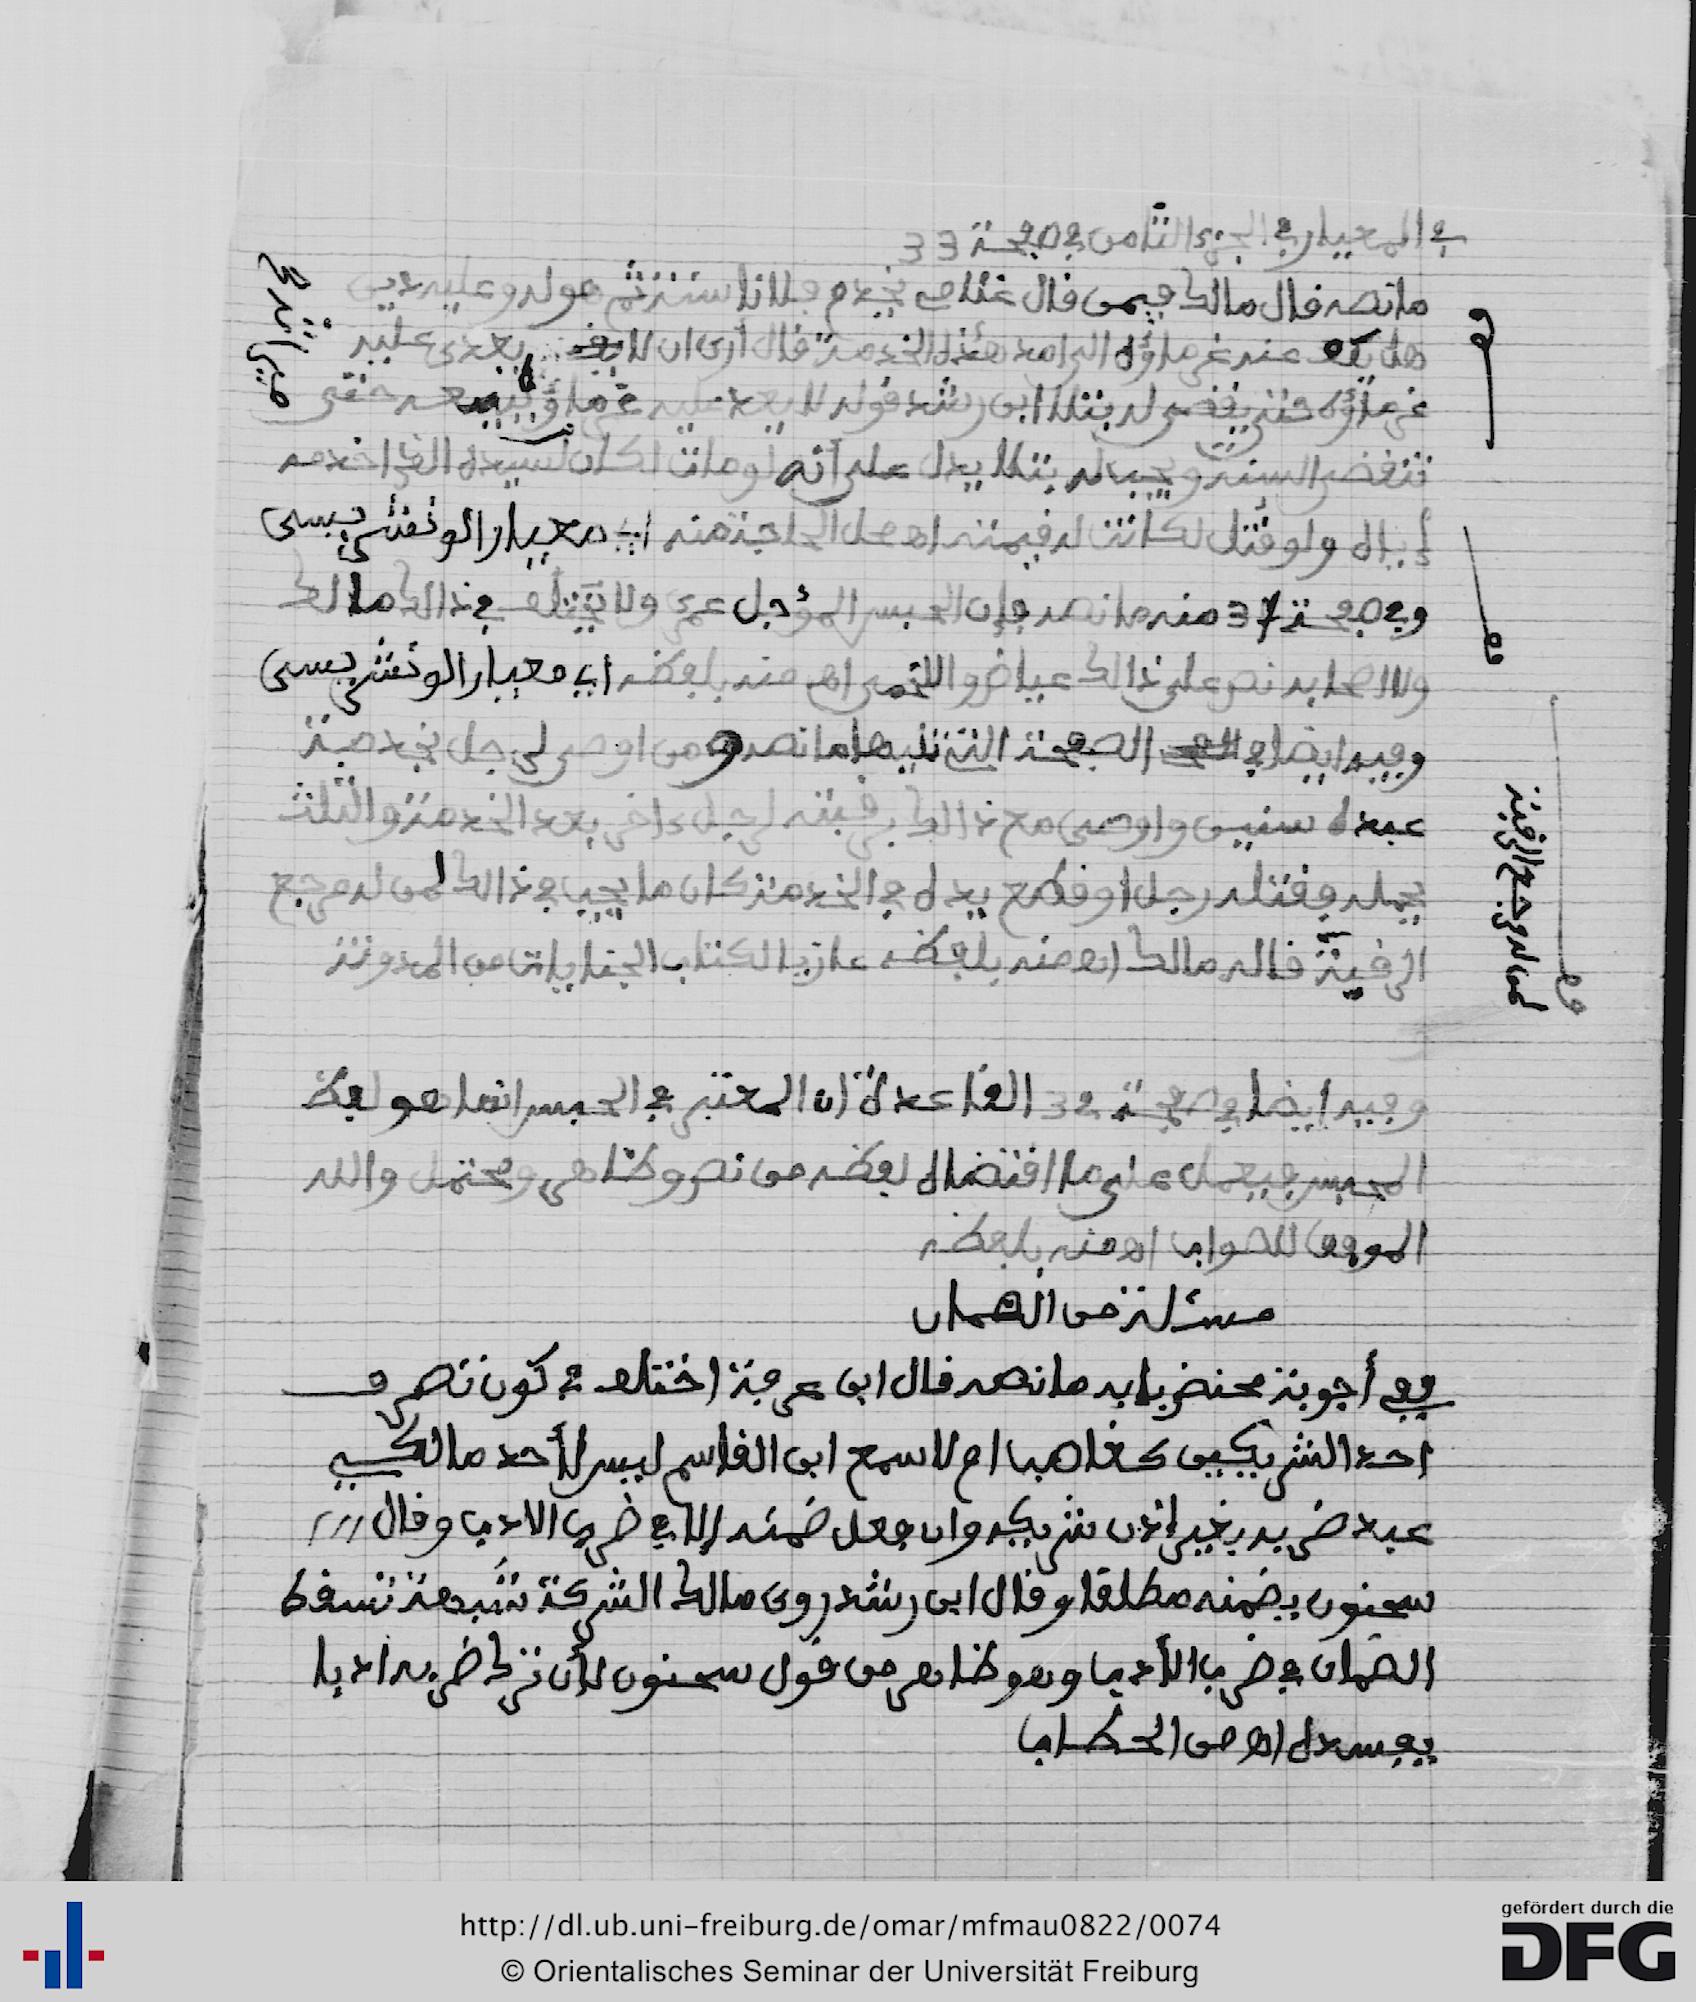 في المعيار في الجزء الثامن في صفحة 33
ما نصه قال مالك فيمن قال غلامي يخدم فلانا سنة ثم هو له وعليه دين
هل يكون عند غرماؤه البر امد هذه الخدمة قال أرى ان لا بعدى عليه
غرماؤه حتى يقضى له بتلا ابن رشد قوله لا يعد عليه غرماؤ حتى
تنقضى السنة ويجب له بتلا يدل على أنه لو مات لكان لسيده الذي اخدمه
إياه ولو قتل لكانت له قيمته اه محل الحاجة منه اي معيار الونشريسى
وفي صفحة 37 منه ما نصه فإن الحبس المؤجل عمرى ولا يختلف في ذالك مالك
ولا اصحابه نص على ذالك عياض واللخمى اه منه بلفظه اي معيار الونشريسى
وفيه ايضا في الصفحة التى تليها ما نصه ومن اوصى لرجل بخدمة
عبده سنين واوصى مع ذالك برقبته لرجل ءاخر بعد الخدمة والثلث
يحمله فقتله رجل او قطع يده في الخدمة كان ما يجب في ذالك لمن له مرجع
الرقبة قاله مالك اه منه بلفظه عازيا لكتاب الجنايات من المدونة
لمن له مرجع الرقبة
وفيه ايضا في صفحة القاعدة ان المعتبر في الحبس انما هو لفظ
المحبس فيعمل على ما اقتضاه لفظه من نص وظاهر ومحتمل والله
الموفق للصواب اه منه بلفظه
مسئلة من الضمان
وفي أجوبة محنض بابه ما نصه قال ابن عرفة اختلف في كون تصرف
احد الشريكين كغاصب ام لا سمع ابن القاسم ليس لأحد مالكي
عبد ضربه بغير إذن شريكه وان فعل ضمنه إلا في ضرب الادب وقال
سحنون يضمنه مطلقا وقال ابن رشد روى مالك الشركة شبهة تسقط
الضمان في ضرب الأدب وهو ظاهر من قول سحنون لأن ترك ضربه ادبا
يفسده اه من الحطاب
http://dl.ub.uni-freiburg.de/omar/mfmau0822/0074
© Orientalisches Seminar der Universität Freiburg
gefördert durch die
DFG